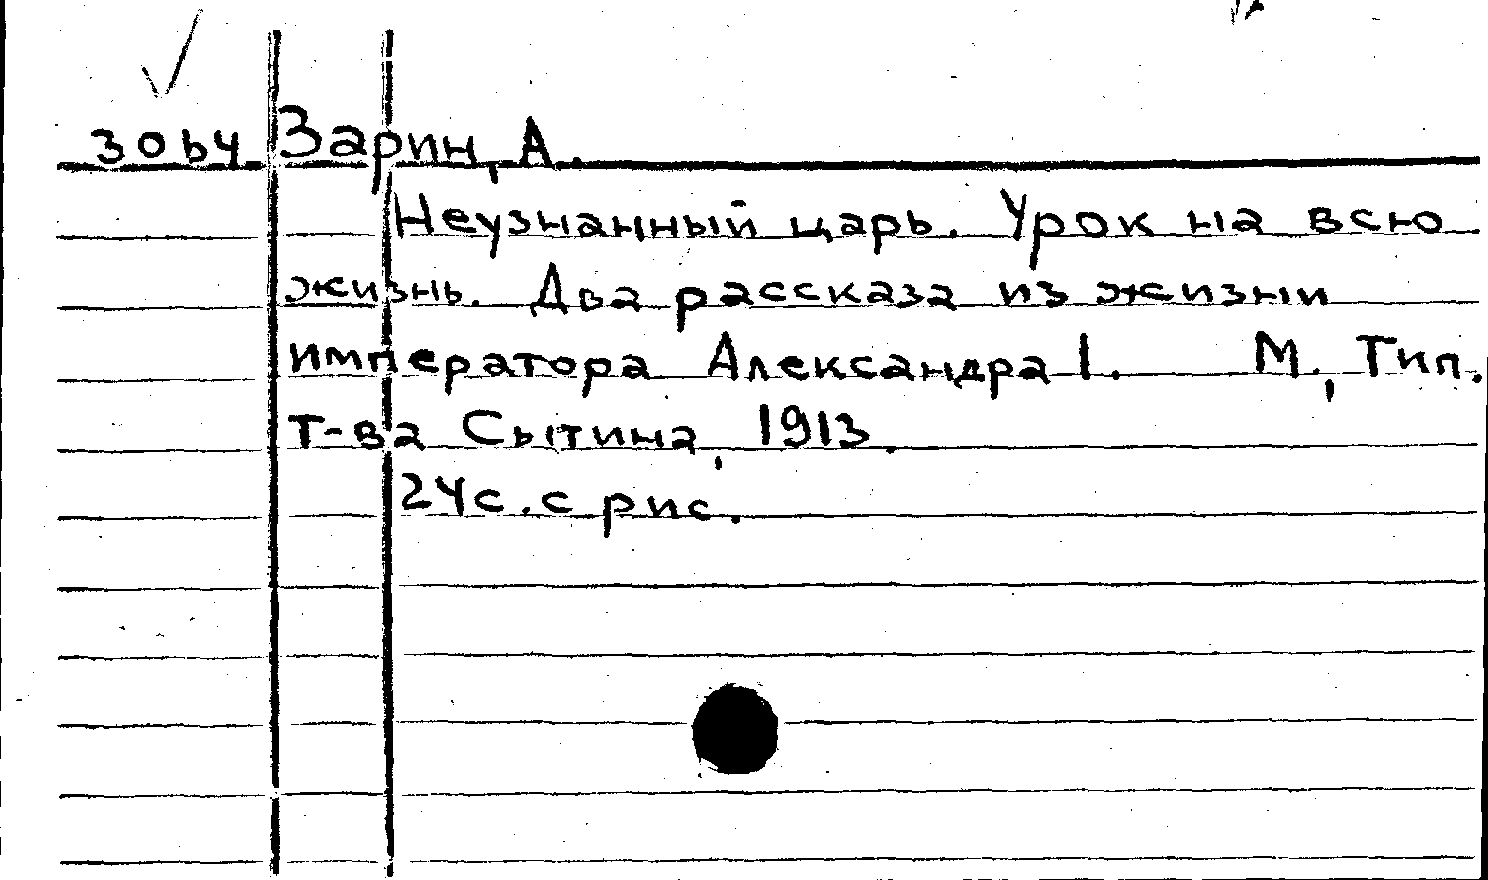 зовч Зарин, А.
Неузнанный царь. Урок на всю
жизнь. Два рассказа из жизни
императора Александра I. М., Тип.
Т-ва Сытина, 1913.
24с. с рис.